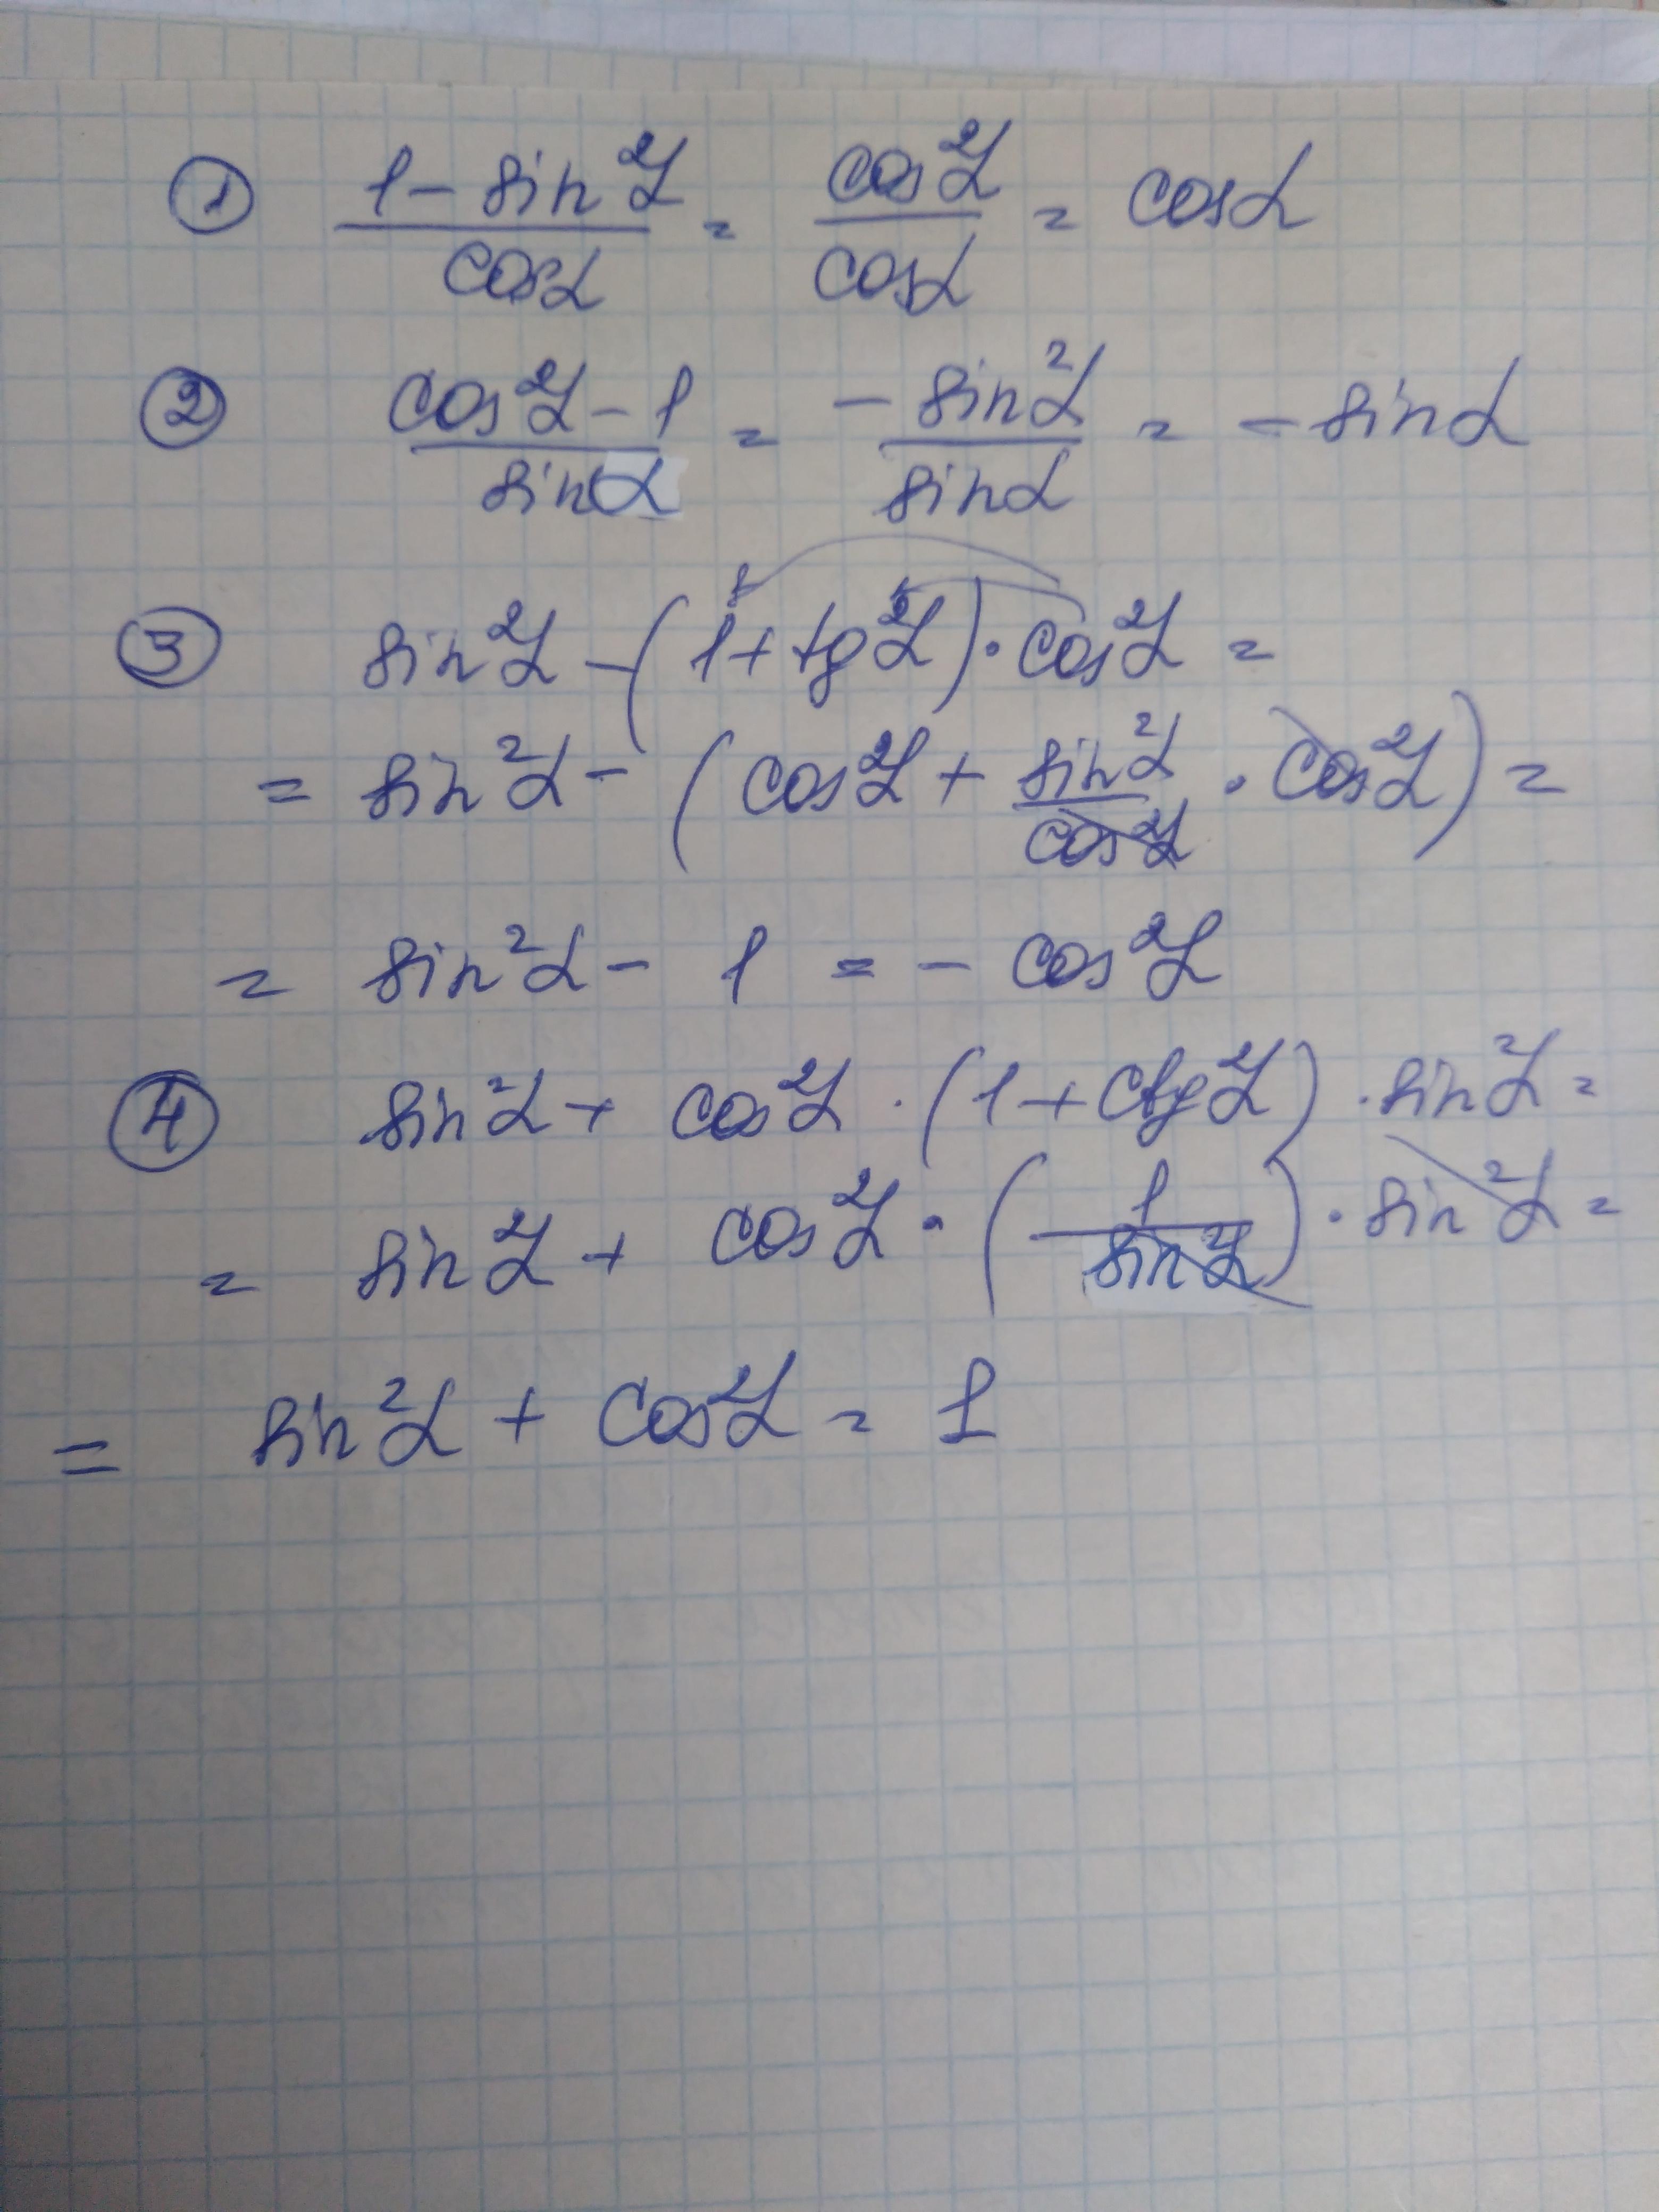 ① (1 - sin²α)/cosα = cos²α/cosα = cosα
② (cos²α - 1)/sinα = - sin²α/sinα = - sinα
③ sin²α - (1 + tg²α) · cos²α =
= sin²α - (cos²α + sin²α/cos²α · cos²α) =
= sin²α - 1 = - cos²α
④ sin²α + cos²α · (1 + ctg²α) · sin²α =
= sin²α + cos²α · (1/sin²α) · sin²α =
= sin²α + cos²α = 1